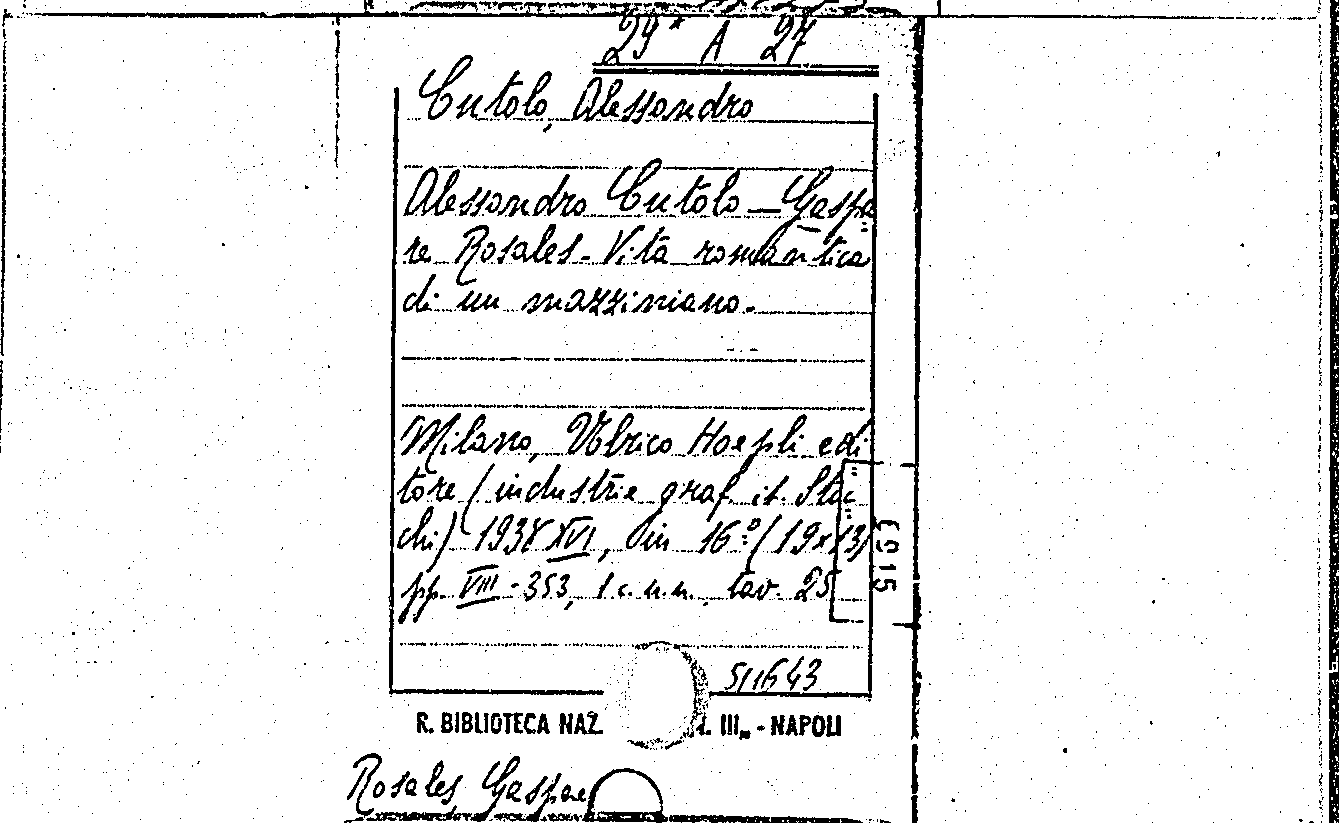 29* A 27
Cutolo, Alessandro
Alessandro Cutolo — Gaspa
re Rosales - Vita romantica
di un mazziniano.
Milano, Ulrico Hoepli edi
tore (industrie graf. it. Stuc
chi) 1938 XVI, in 16° (19x13)
pp. VIII - 353, 1 c. n. n., tav. 25
1915
511643
R. BIBLIOTECA NAZ. . III. - NAPOLI
Rosales Gaspare